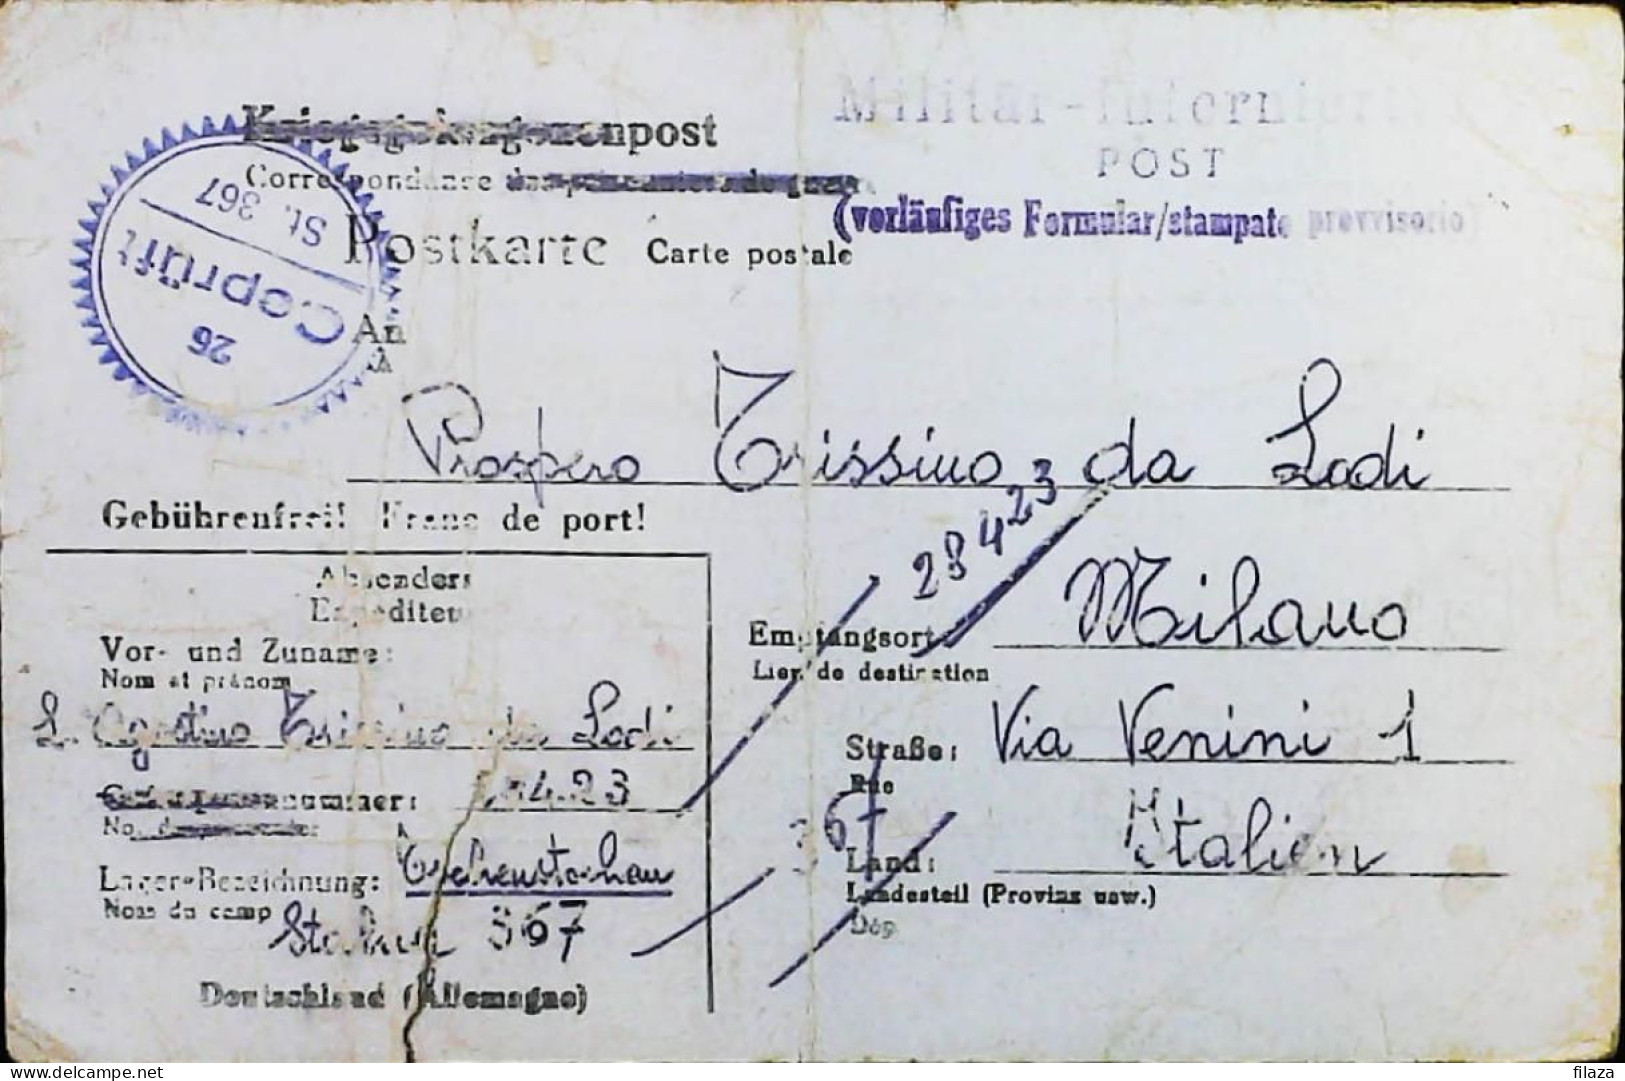 Militär-Internierten
POST
(vorläufiges Formular/stampate provvisorio)
Kriegsgefangenenpost
Correspondance des prisonniers de guerre
Postkarte Carte postale
St. 367
Geprüft
26
An
à
Prospero Trissino da Lodi
28423
Gebührenfrei! Franc de port!
Absender:
Expéditeur
Vor- und Zuname:
Nom et prénom
S. Agostino Trissino da Lodi
Gefangenennummer: 28423
No. du prisonnier
Lager-Bezeichnung: Tschenstochau
Nom du camp
Stalag 367
Deutschland (Allemagne)
Empfangsort: Milano
Lieu de destination
Straße: Via Venini 1
Rue
367
Land: Italien
Landesteil (Provinz usw.)
Dép
filaza